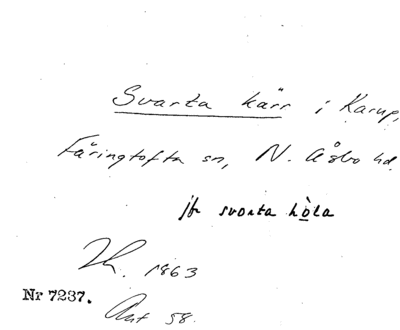 Svarta kärr i Karup,
Färingtofta sn, N. Åsbo hd.
jfr svarta hòla
1863
Nr 7237.
Ant 58.